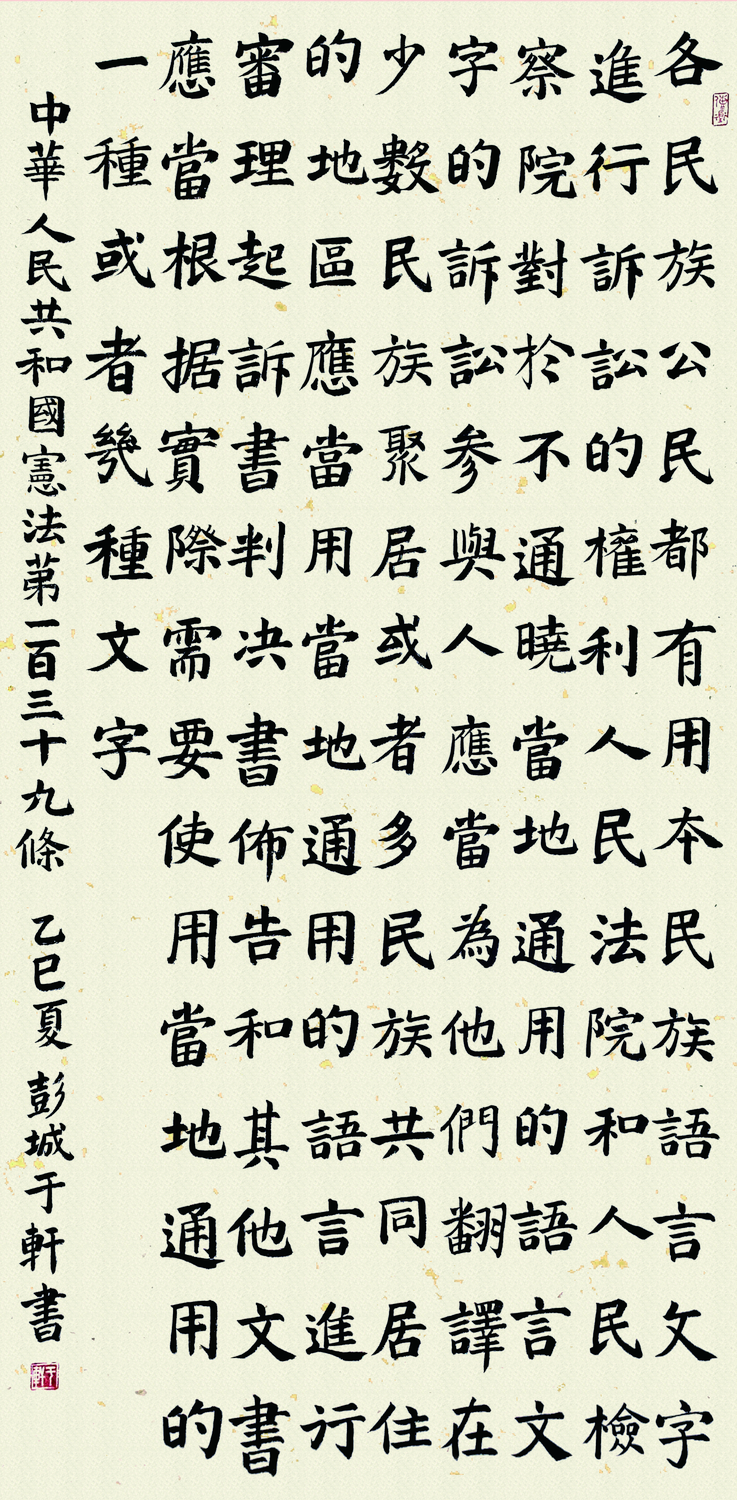 各民族公民都有用本民族語言文字
進行訴訟的權利人民法院和人民檢
察院對於不通曉當地通用的語言文
字的訴訟参與人應當為他們翻譯在
少數民族聚居或者多民族共同居住
的地區應當用當地通用的語言進行
審理起訴書判决書佈告和其他文書
應當根据實際需要使用當地通用的
一種或者幾種文字
中華人民共和國憲法第一百三十九條 乙巳夏 彭城于軒書